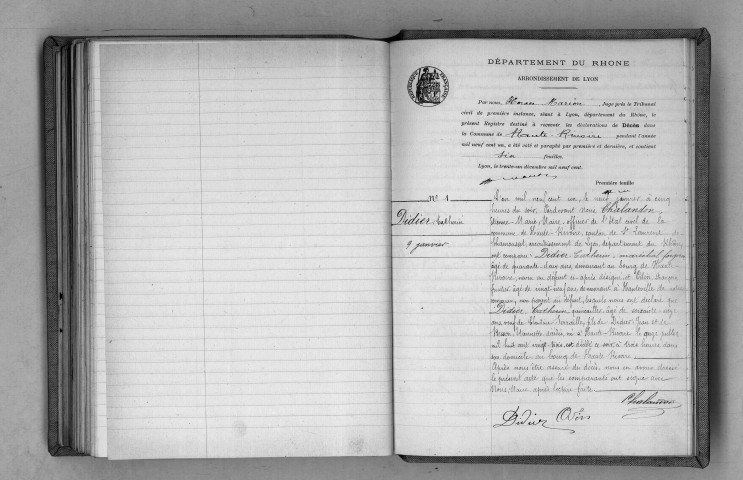 DÉPARTEMENT DU RHONE
ARRONDISSEMENT DE LYON
RÉPUBLIQUE FRANÇAISE
Par nous, Marion, Juge près le Tribunal
civil de première instance, séant à Lyon, département du Rhône, le
présent Registre destiné à recevoir les déclarations de Décès dans
la Commune de Haute-Rivoire pendant l'année
mil neuf cent un, a été coté et paraphé par première et dernière, et contient
six feuilles.
Lyon, le trente-un décembre mil neuf cent.
Première feuille
N° 1
Didier Catherin
9 janvier
L'an mil neuf cent un, le neuf janvier, à cinq
heures du soir, Pardevant Nous Chalandon
Marie Maire, officier de l'état civil de la
commune de Haute-Rivoire, canton de St Laurent de
Chamousset, arrondissement de Lyon, département du Rhône
ont comparu Didier Catherin, maréchal
âgé de quarante-deux ans, demeurant au bourg de Haute
Rivoire, du défunt ci-après désigné et
âgé de vingt-neuf ans demeurant à
du défunt, lesquels nous ont déclaré que
Didier, Catherin âgé de soixante
veuf de Claudine fils de Didier Jean et de
né à Haute-Rivoire le onze
mil huit cent vingt-trois est décédé ce soir, à trois heures dans
son domicile au bourg de Haute Rivoire
Après nous être assuré du décès, nous en avons dressé
le présent acte que les comparants ont signé avec
Nous Maire après lecture faite
Chalandon
Didier